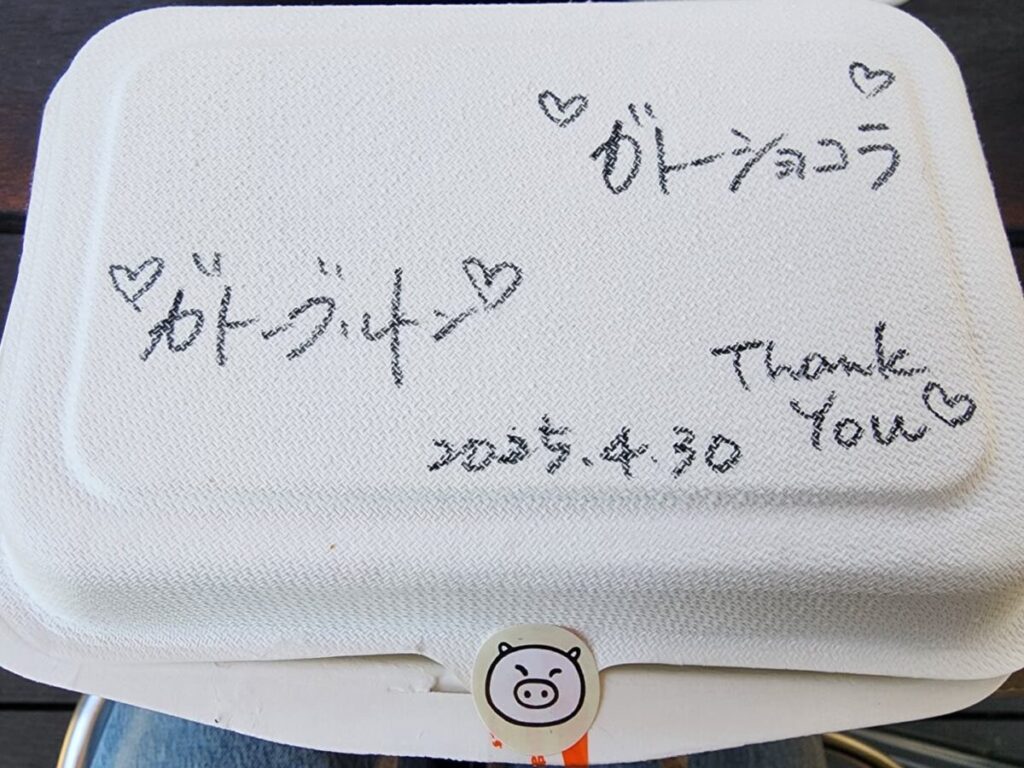 ♡ガトーショコラ♡
♡ガトーブルトン♡
Thank
You♡
2025.4.30